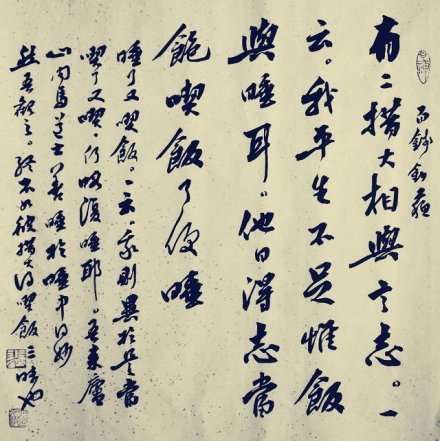 有二措大相與言志。一
云。我平生不足惟飯
與睡耳。他日得志當
飽喫飯了便睡
睡了又喫飯。一云。我則異於是當
喫了又喫。何暇復睡耶。吾來廬
山聞馬道士善睡於睡中得妙
然吾觀之。終不如彼措大得喫飯三昧也